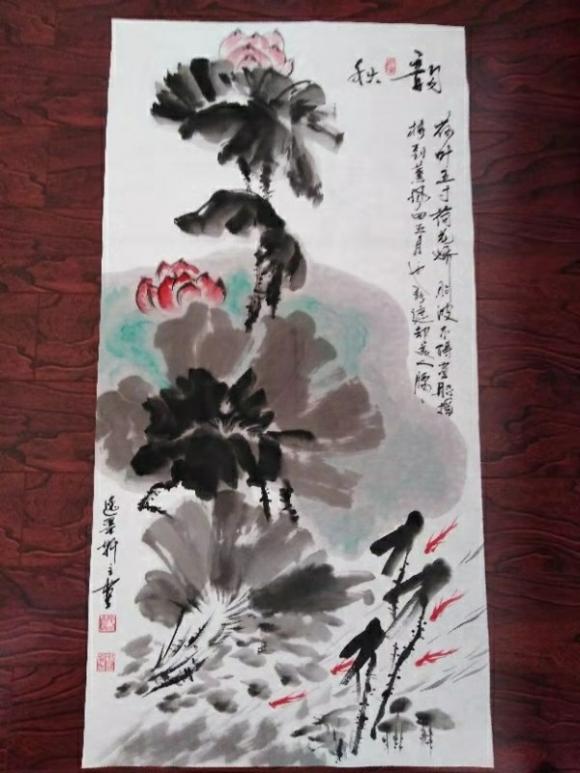 韵秋
荷叶五寸荷花娇贴波不碍画船摇
相到薰风四五月也能遮却美人腰
轩主